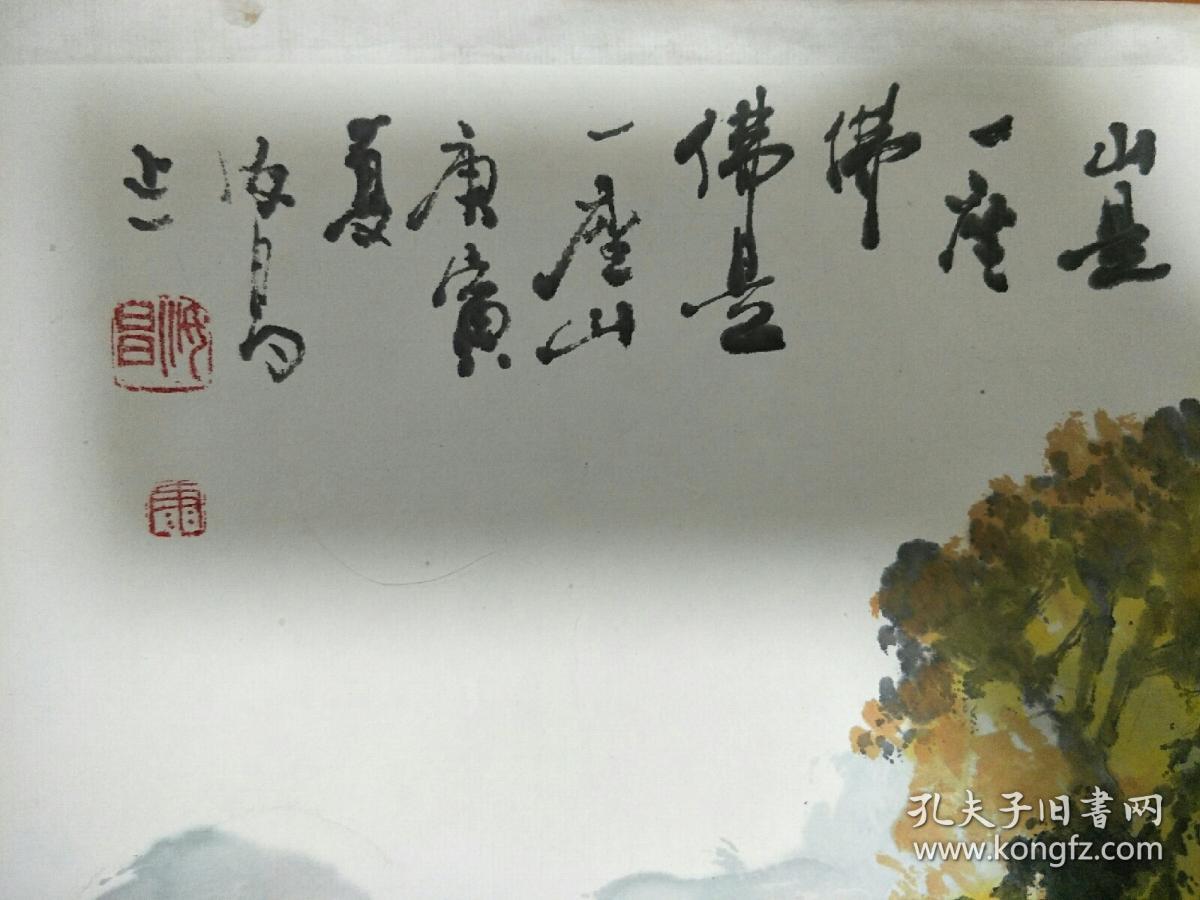 山是
一座
佛
佛是
一座山
庚寅
夏
海昌
上
海昌
康
孔夫子旧书网
www.kongfz.com